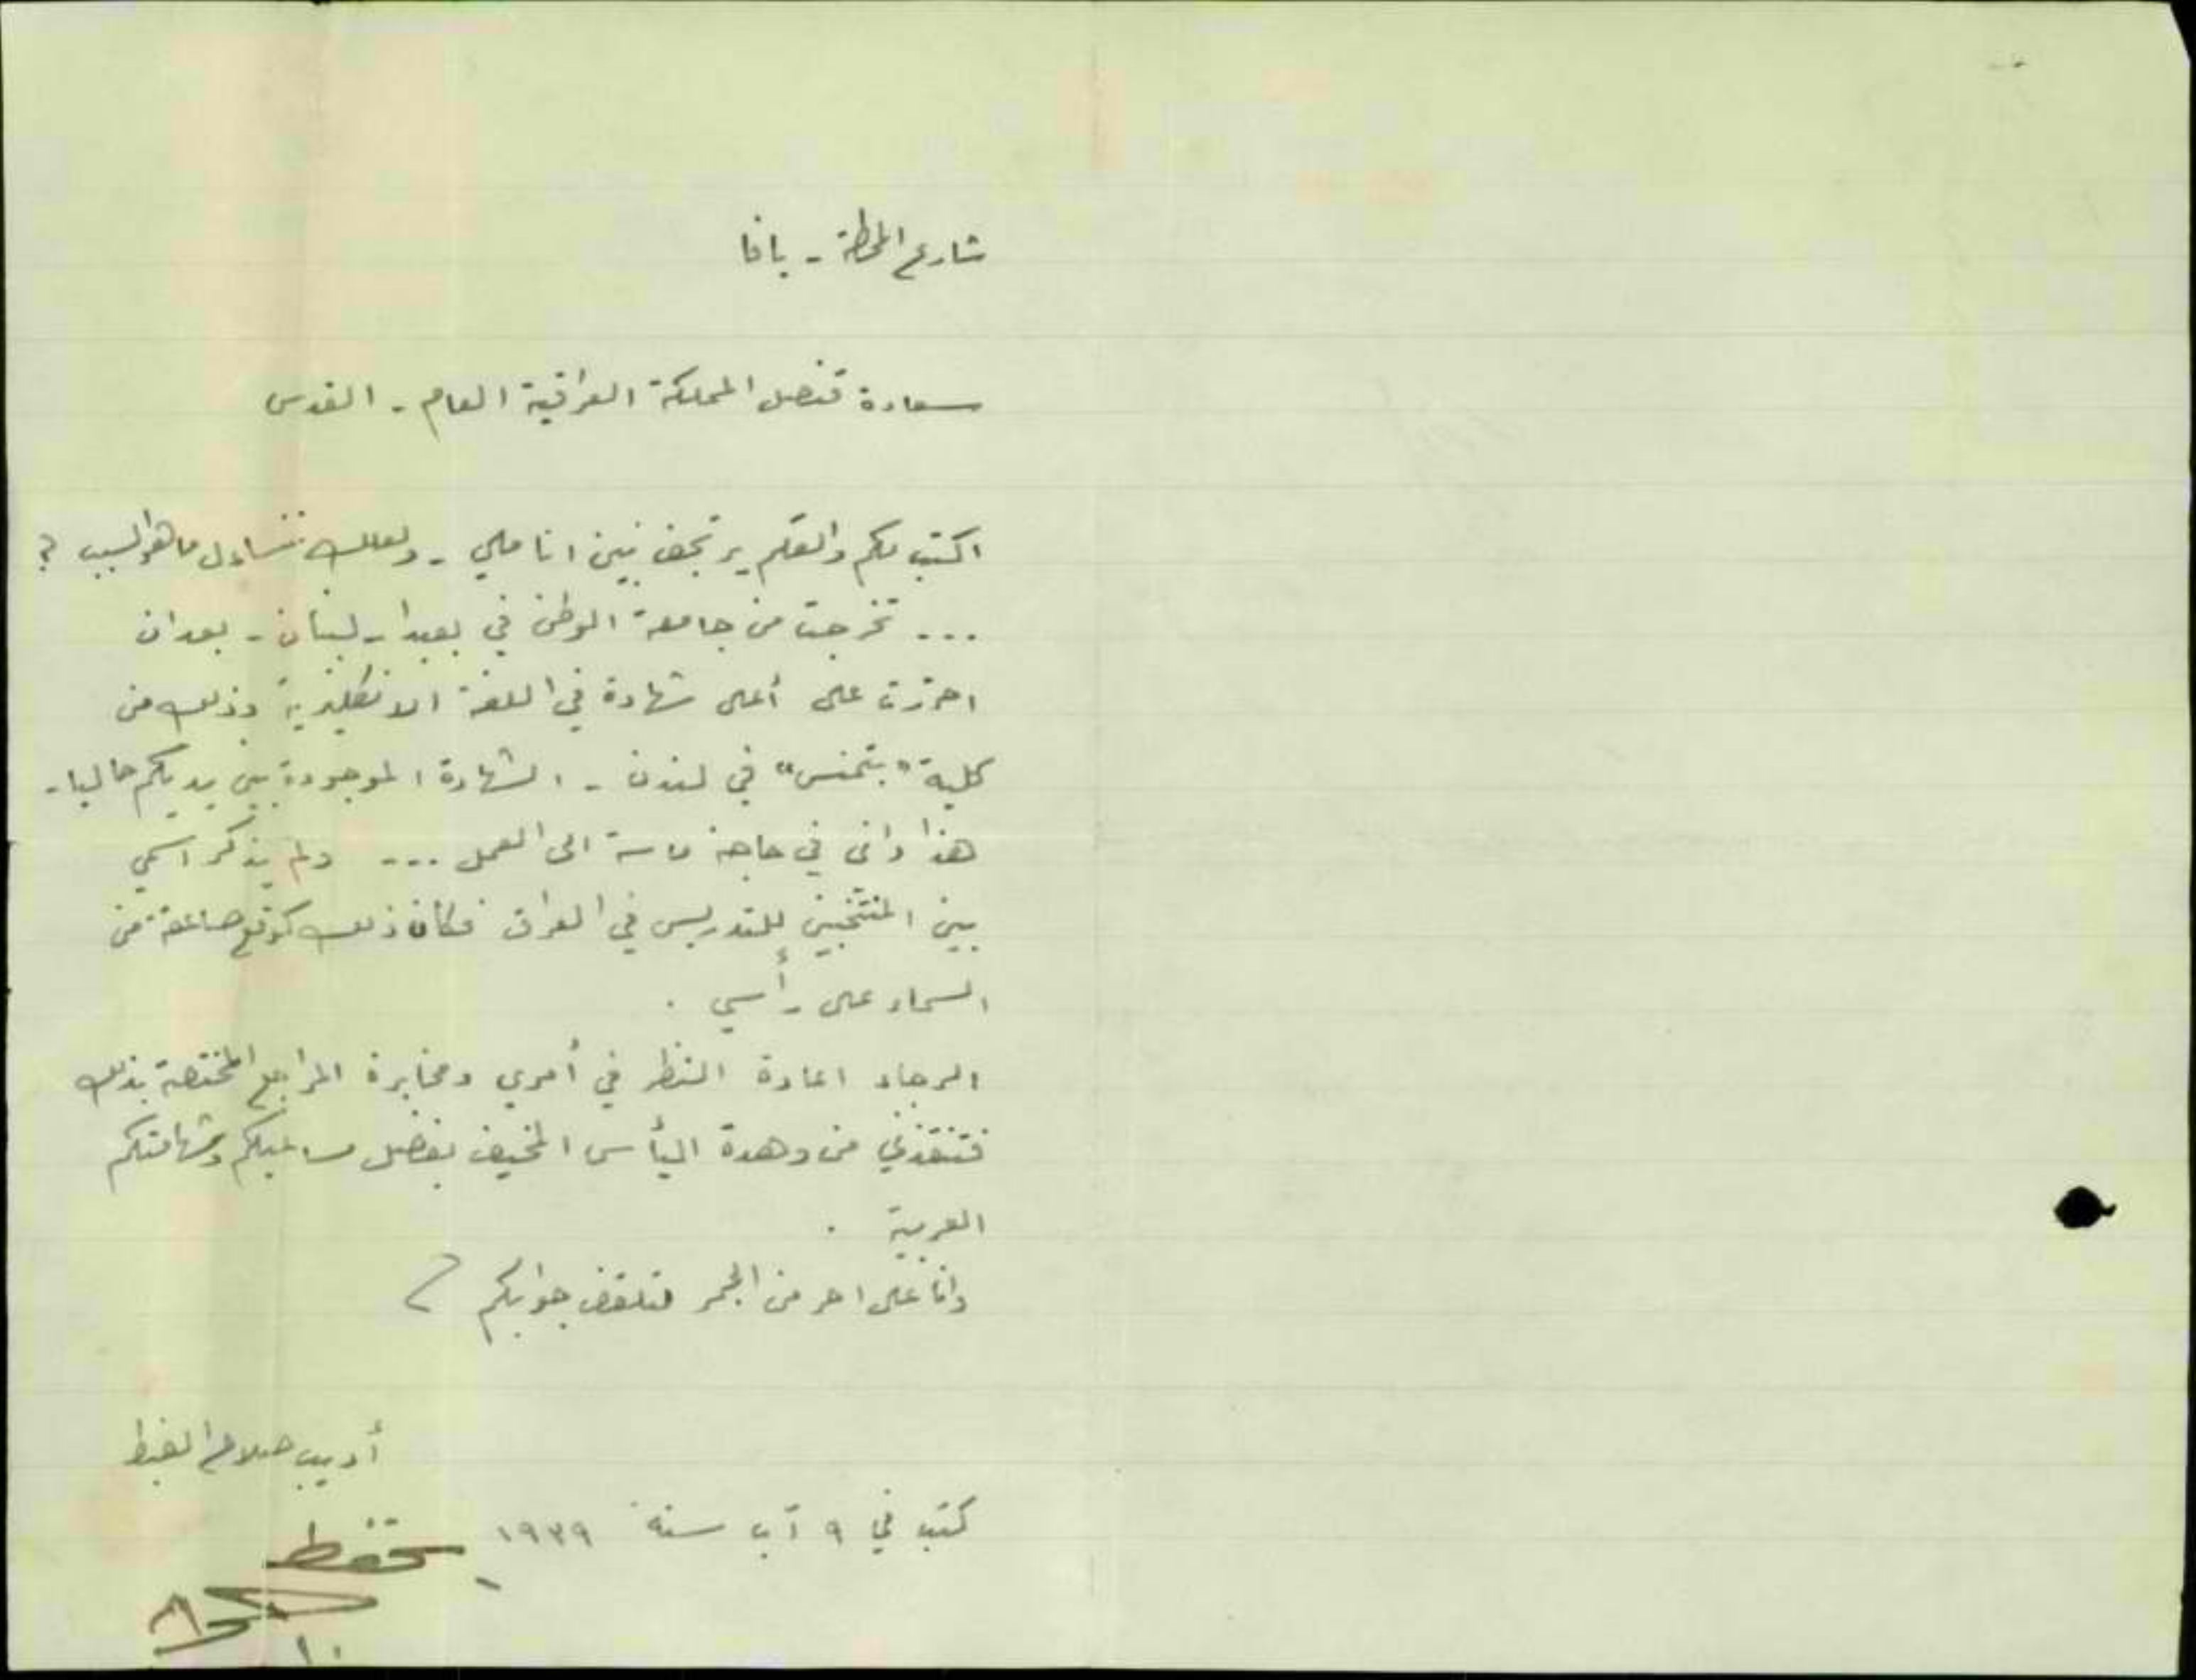 شارع المحطة - يافا
سعادة قنصل المملكة العراقية العام - القدس
اكتب لكم والقلم يرتجف بين اناملي - ولعلك تتساءل ما هو السبب ؟
... تخرجت من جامعة الوطن في بعبدا - لبنان - بعد ان
احرزت على أعلى شهادة في اللغة الانكليزية وذلك من
كلية "بتمنس" في لندن - الشهادة الموجودة بين يديكم حاليا -
هذا واني في حاجة ماسة الى العمل ... ولم يذكر اسمي
بين المنتخبين للتدريس في العراق فكان ذلك كوقع صاعقة من
السماء على رأسي .
الرجاء اعادة النظر في أمري ومخابرة المراجع المختصة بذلك
فتنقذني من وهدة اليأس المخيف بفضل مساعيكم وشهامتكم
العربية .
وانا على احر من الجمر لتلقف جوابكم
أديب صلاح
كتب في ٩ آب سنة ١٩٣٩
تحفظ